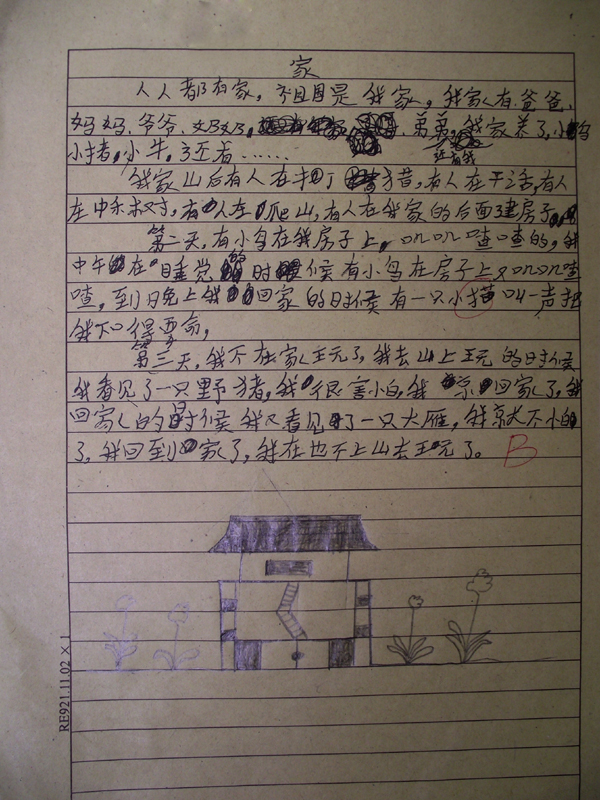 家
人人都有家，祖国是我家，我家有爸爸、
妈妈、爷爷、奶奶、弟弟，我家养了，小鸡
小猪，小牛，还有……
还有我
我家山后有人在打猎，有人在干活，有人
在中禾木对，有人在爬山，有人在我家的后面建房子。
第二天，有小鸟在我房子上，叽叽喳喳的，我
中午在睡觉的时候有小鸟在房子上叽叽喳
喳，到晚上我回家的时候有一只小猫叫一声把
我吓得要命，
第三天，我不在家玩了，我去山上玩的时候
我看见了一只野猪，我很害怕，我就回家了，我
回家的时候我又看见了一只大雁，我就不怕
了，我回到家了，我在也不上山去玩了。
B
RE921.11.02×1